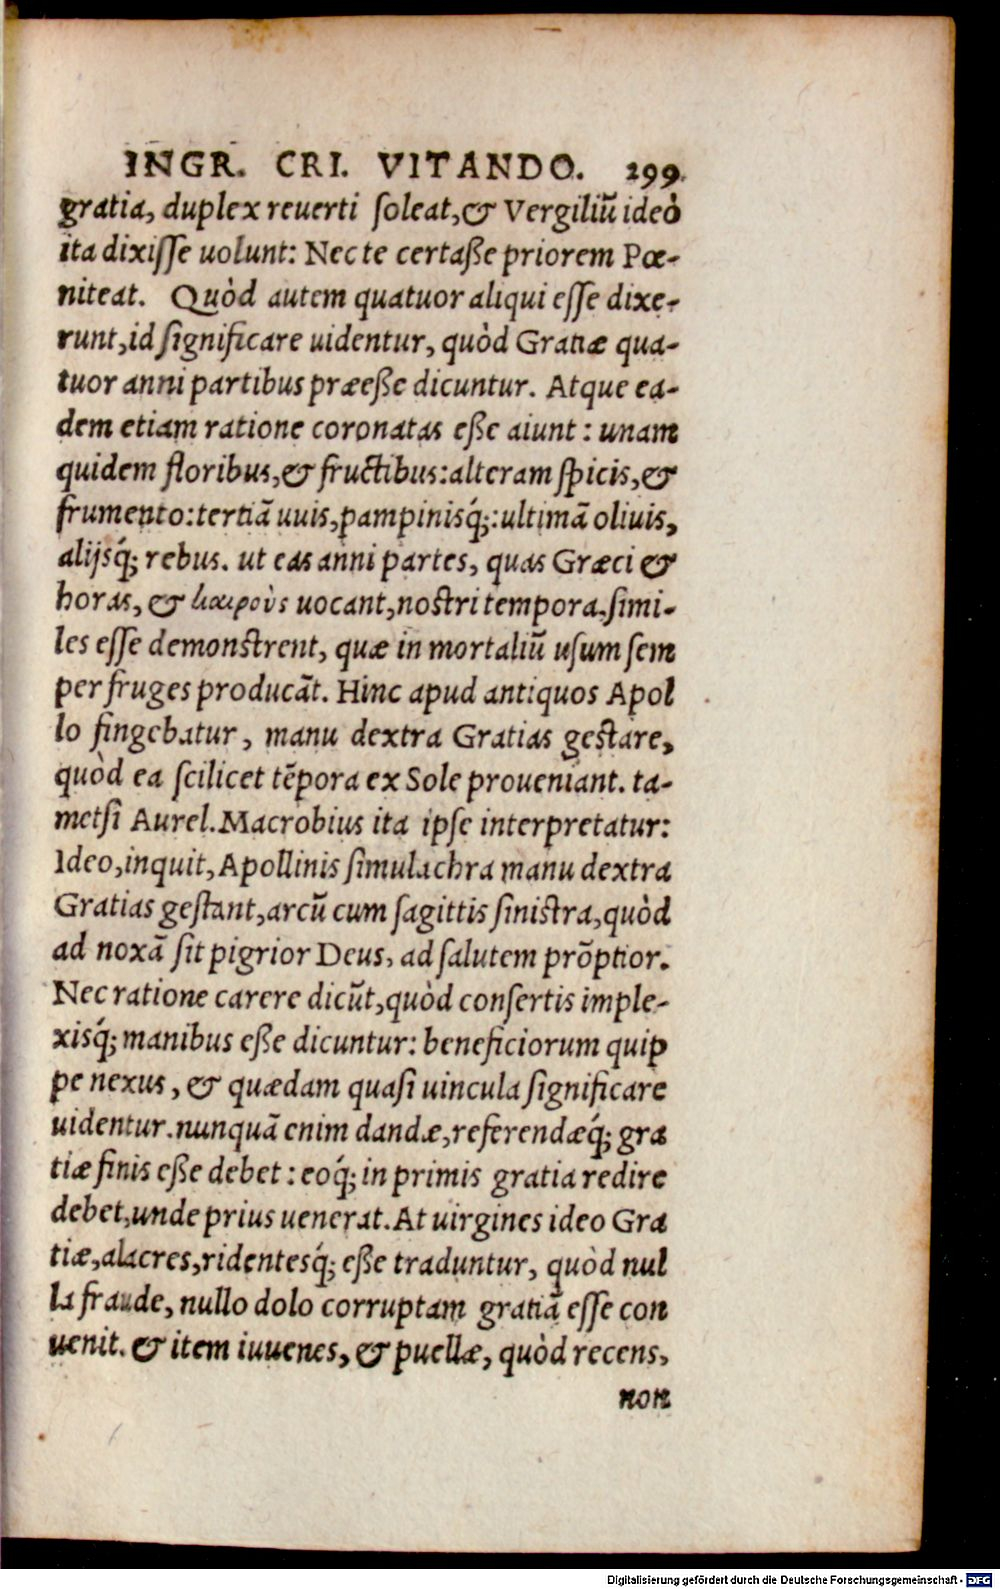 INGR. CRI. VITANDO. 299.
gratia, duplex reuerti ſoleat, & Vergiliū ideò
ita dixiſſe uolunt: Nec te certaße priorem Pœ-
niteat. Quòd autem quatuor aliqui eſſe dixe-
runt, id ſignificare uidentur, quòd Gratiæ qua-
tuor anni partibus præeße dicuntur. Atque ea-
dem etiam ratione coronatas eße aiunt: unam
quidem floribus, & fructibus: alteram ſpicis, &
frumento: tertiā uuis, pampinisq́;: ultimā oliuis,
alijsq́; rebus. ut eas anni partes, quas Græci &
horas, & καιροὺς uocant, noſtri tempora, ſimi-
les eſſe demonſtrent, quæ in mortaliū uſum ſem
per fruges producāt. Hinc apud antiquos Apol
lo fingebatur, manu dextra Gratias geſtare,
quòd ea ſcilicet tēpora ex Sole proueniant. ta-
metſi Aurel. Macrobius ita ipſe interpretatur:
Ideo, inquit, Apollinis ſimulachra manu dextra
Gratias geſtant, arcū cum ſagittis ſiniſtra, quòd
ad noxā ſit pigrior Deus, ad ſalutem prōptior.
Nec ratione carere dicūt, quòd conſertis imple-
xisq́; manibus eße dicuntur: beneficiorum quip
pe nexus, & quædam quaſi uincula ſignificare
uidentur. nunquā enim dandæ, referendæq́; gra
tiæ finis eße debet: eoq́; in primis gratia redire
debet, unde prius uenerat. At uirgines ideo Gra
tiæ, alacres, ridentesq́; eße traduntur, quòd nul
la fraude, nullo dolo corruptam gratiā eſſe con
uenit. & item iuuenes, & puellæ, quòd recens,
non
Digitalisierung gefördert durch die Deutsche Forschungsgemeinschaft - DFG